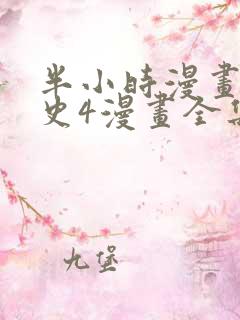 半小時漫畫
史4漫畫全集
九堡